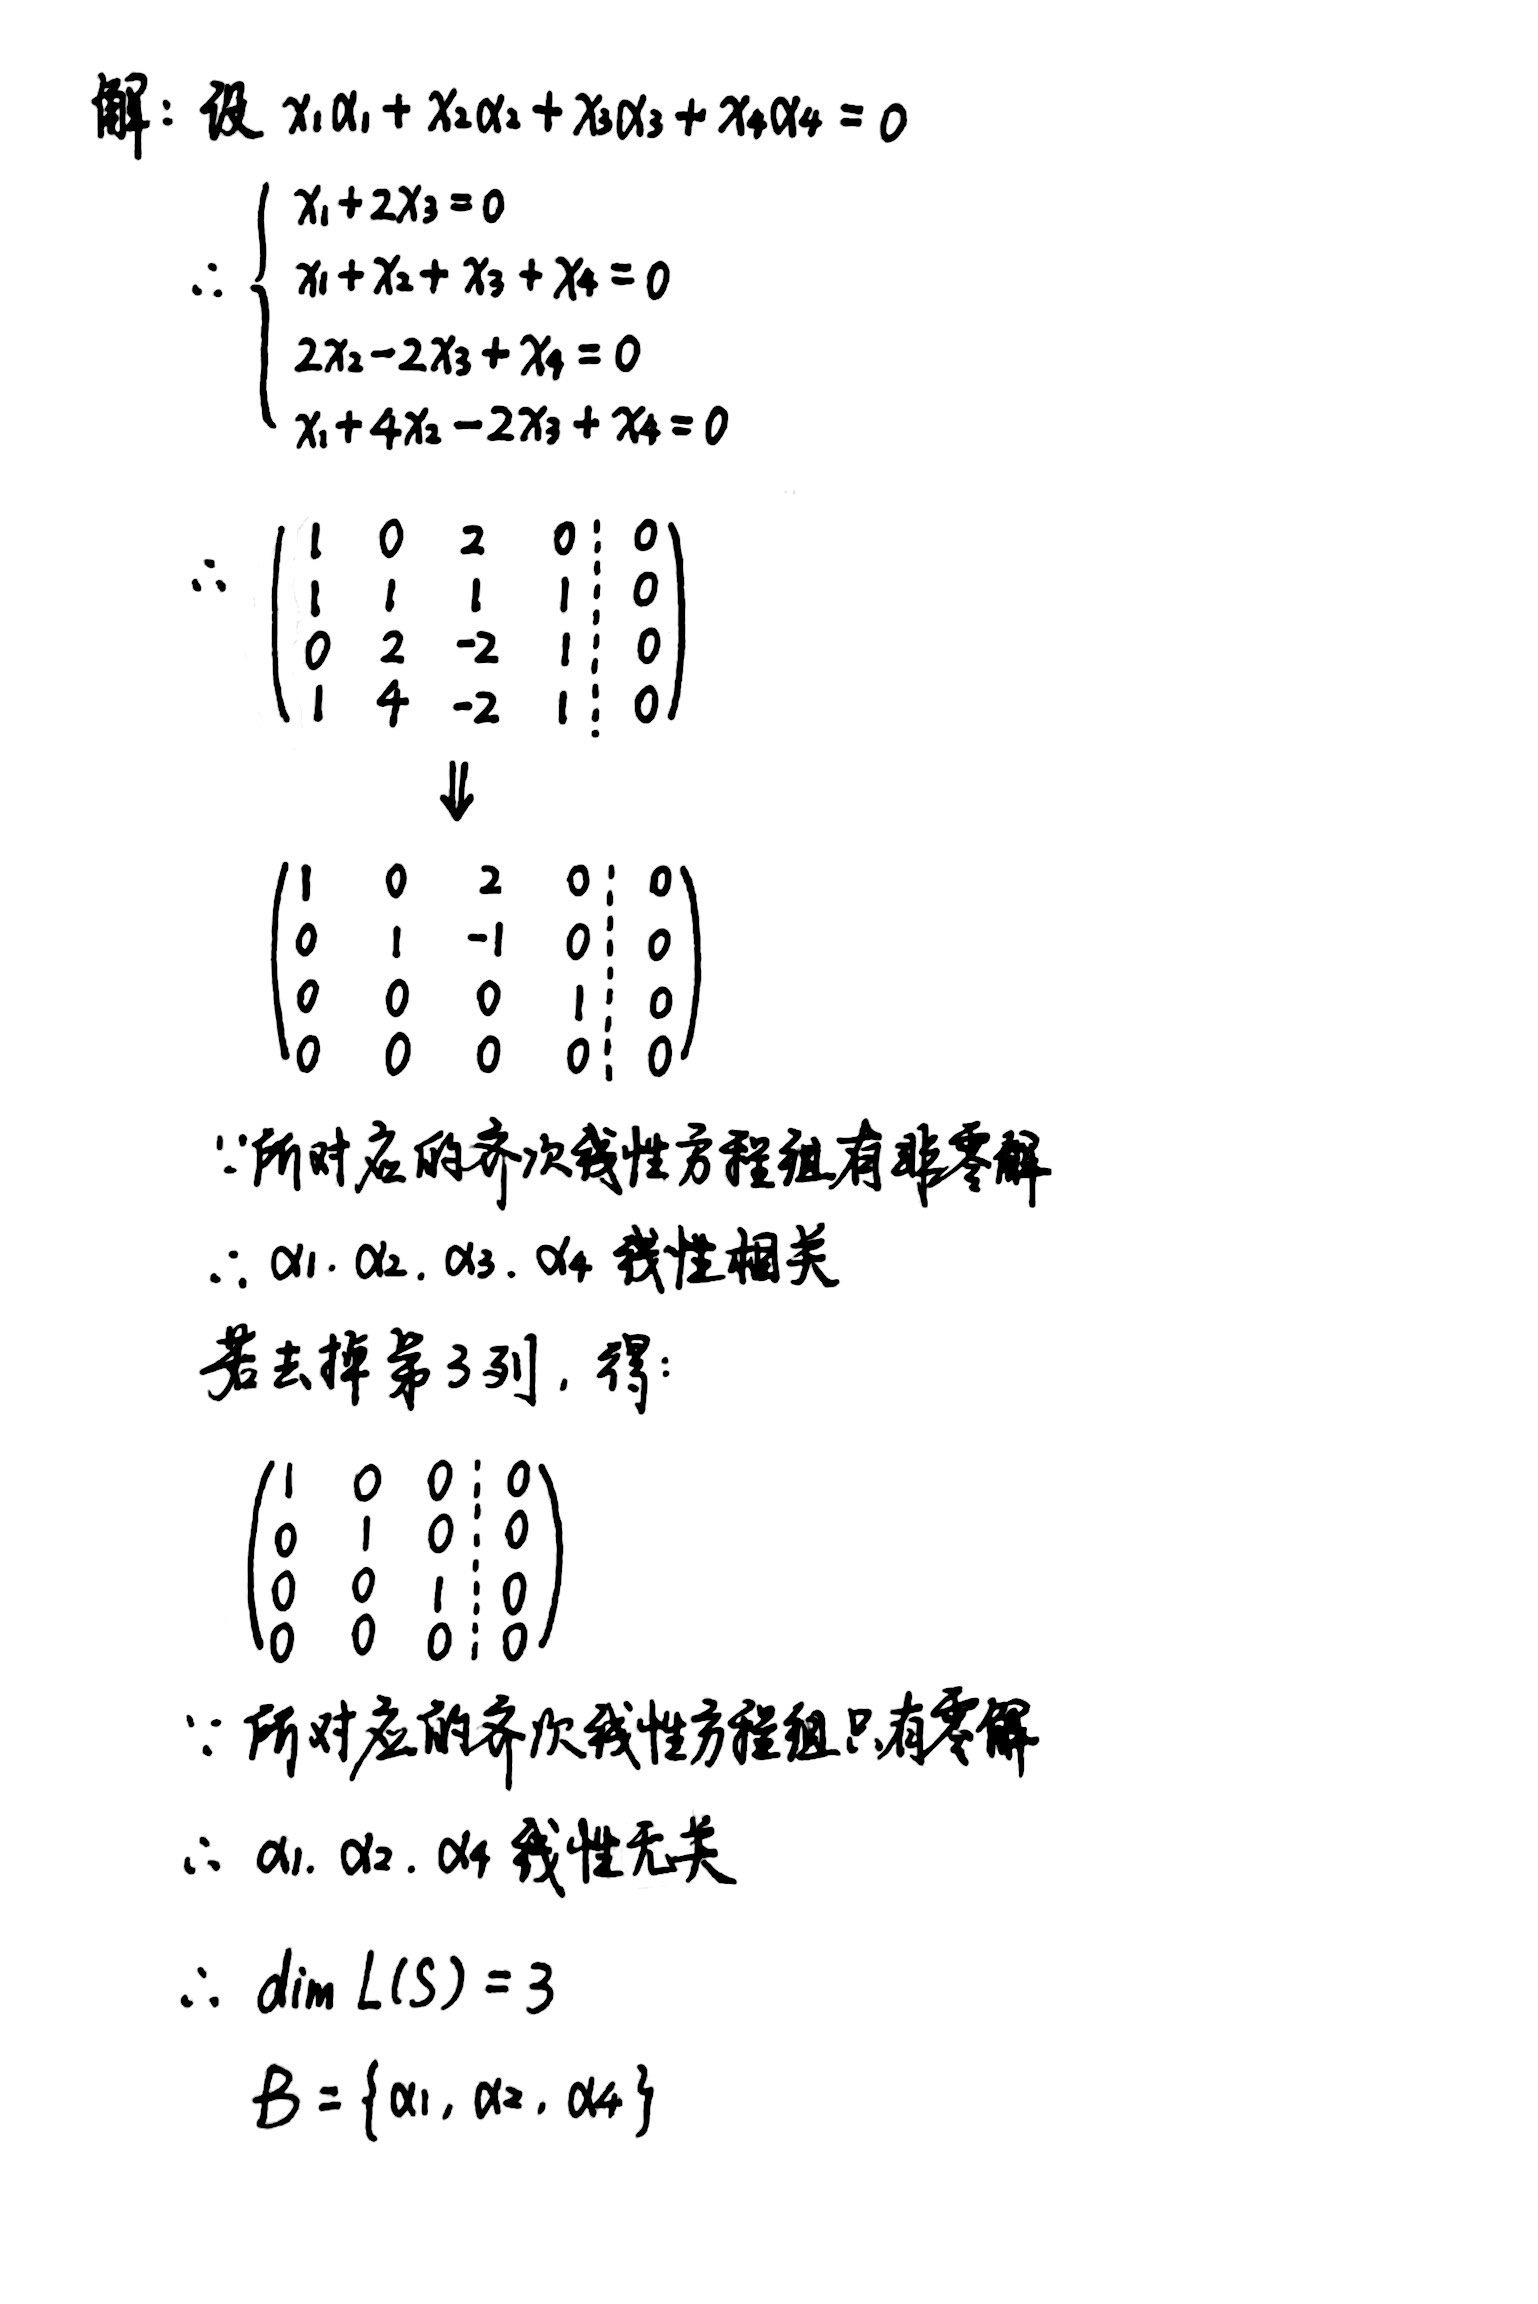 解：设 x₁α₁+x₂α₂+x₃α₃+x₄α₄=0
x₁+2x₃=0
∴ { x₁+x₂+x₃+x₄=0
2x₂-2x₃+x₄=0
x₁+4x₂-2x₃+x₄=0
∴ 1 0 2 0 ┊ 0
1 1 1 1 ┊ 0
0 2 -2 1 ┊ 0
1 4 -2 1 ┊ 0
⇓
1 0 2 0 ┊ 0
0 1 -1 0 ┊ 0
0 0 0 1 ┊ 0
0 0 0 0 ┊ 0
∵所对应的齐次线性方程组有非零解
∴ α₁. α₂. α₃. α₄ 线性相关
若去掉第3列，得：
1 0 0 ┊ 0
0 1 0 ┊ 0
0 0 1 ┊ 0
0 0 0 ┊ 0
∵ 所对应的齐次线性方程组只有零解
∴ α₁. α₂. α₄ 线性无关
∴ dim L(S) = 3
B = {α₁, α₂, α₄}